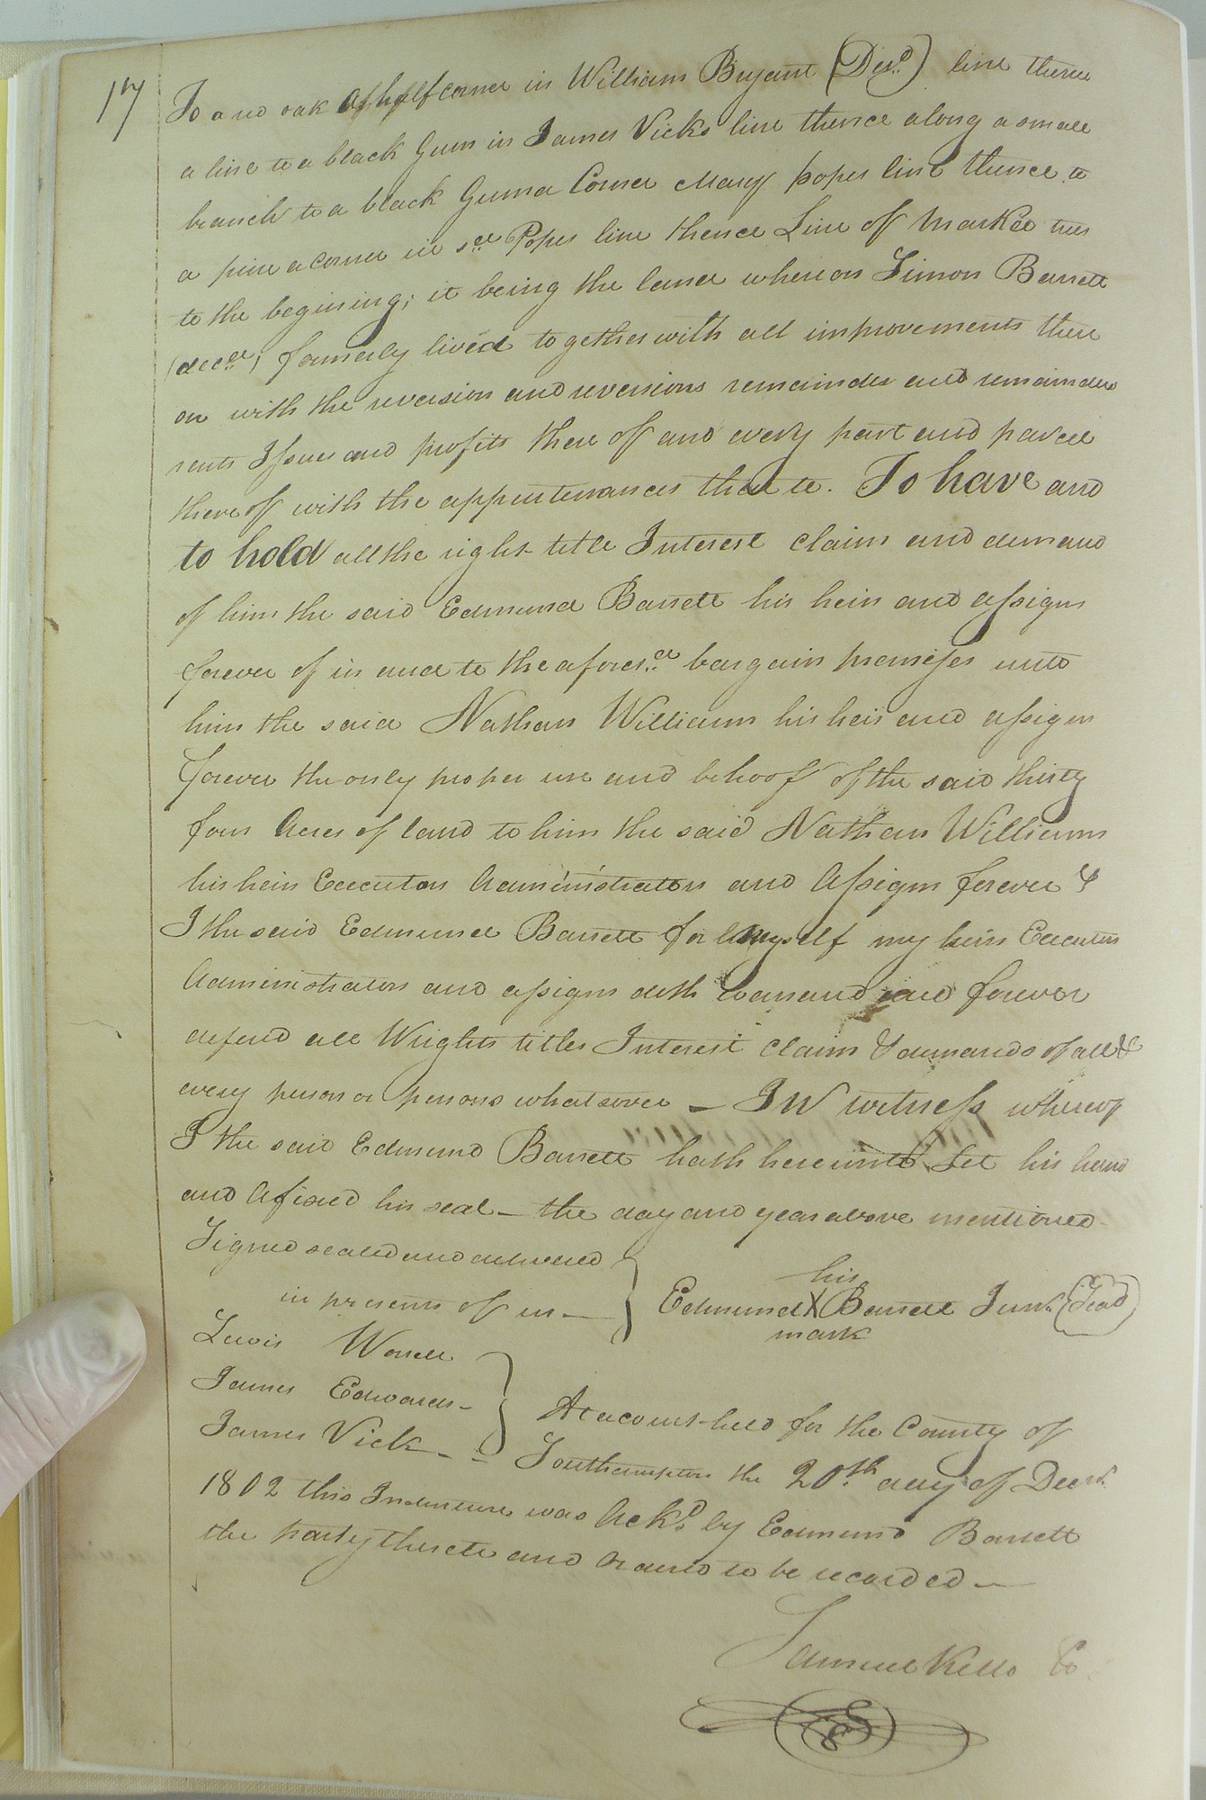 17
To a red oak a half corner in William Bryant (Desd.) line thence
a line to a black Gum in James Vicks line thence along a small
branch to a black Gum a Corner Mary popes line thence to
a pine a corner in sd. Popes line thence Line of marked trees
to the begining; it being the land whereon Simon Barrett
(decd.) formerly lived together with all improvements there
on with the reversion and reversions remainder and remainders
rents Issues and profits there off and every part and parcel
there off with the appurtenances thereto. To have and
to hold all the right title Interest claim and demand
of him the said Edmund Barrett his heirs and assigns
forever of in and to the afores.d bargain premises unto
him the said Nathan Williams his heirs and assigns
forever the only proper use and behoof of the said thirty
four Acres of land to him the said Nathan Williams
his heirs Executors Administrators and Assigns forever &
I the said Edmund Barrett for myself my heirs Executors
Administrators and assigns doth warrand and forever
defend all Wrights titles Interest claim & demands of all &
every person or persons whatsover – IN witness whereof
I the said Edmund Barrett hath hereunto Set his hand
and Afixed his seal – the day and year above mentioned
Signed sealed and delivered
in presents of us –
his
Edmund X Barrett Junr. (Seal)
mark
Lewis Worrell
James Edwards –
James Vick –
At a court held for the County of
Southampton the 20th. day of Decr.
1802 this Indenture was Ackd. by Edmund Barrett
the party thereto and Ordered to be recorded –
Samuel Kello